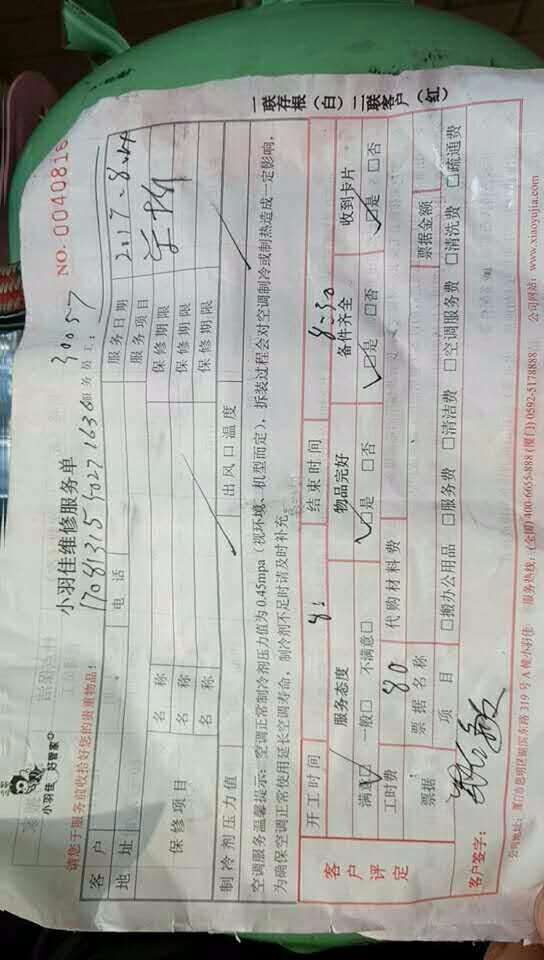 小羽佳 好管家
小羽佳维修服务单
NO. 0040816
请您于服务前收拾好您的贵重物品!
1708131540271636 服务员工: 30057
客户 电话 服务日期 2017.8.
地址 服务项目
保修项目 名称 保修期限
名称 保修期限
名称 保修期限
制冷剂压力值 出风口温度
空调服务温馨提示: 空调正常制冷剂压力值为0.45mpa(视环境、机型而定), 拆装过程会对空调制冷或制热造成一定影响,
为确保空调正常使用延长空调寿命, 制冷剂不足时请及时补充。
一联存根(白) 二联客户(红)
客户评定
开工时间 8: 结束时间 8:50
服务态度 物品完好 备件齐全 收到卡片
满意□ 一般□ 不满意□ □是 □否 □是 □否 □是 □否
工时费 80 代购材料费
票据 票据名称 票据金额
项目 □搬办公用品 □服务费 □清洁费 □空调服务费 □清洗费 □疏通费
客户签字:
公司地址: 厦门市思明区湖滨东路319号A幢小羽佳 服务热线: (全国)400-6655-888 (厦门)0592-5178888 公司网站: www.xiaoyujia.com